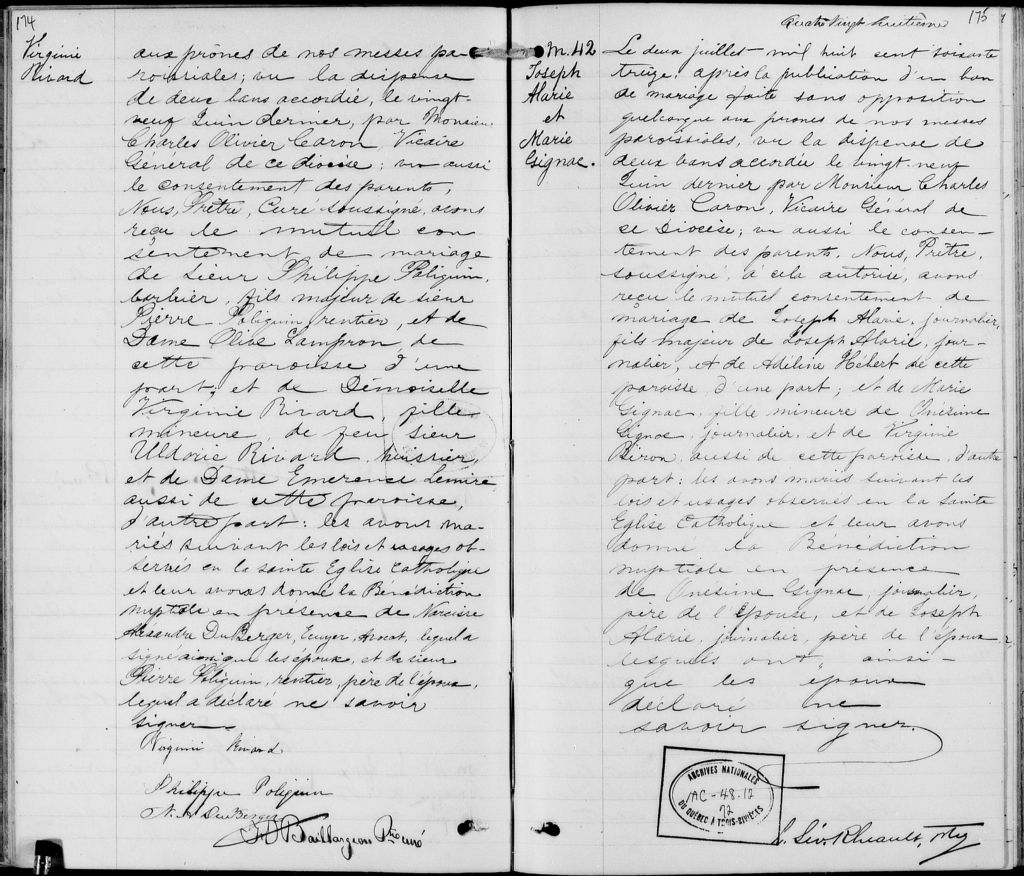 174
Virginie
Rivard
aux prônes de nos messes pa-
roissiales; vu la dispense
de deux bans accordée, le vingt-
neuf Juin dernier, par Monsieur
Charles Olivier Caron, Vicaire
Général de ce diocèse; vu aussi
le consentement des parents,
Nous, Prêtre, Curé soussigné, avons
reçu le mutuel con
sentement de mariage
de Sieur Philippe Poliquin,
barbier, fils majeur de sieur
Pierre Poliquin, rentier, et de
Dame Olive Lampron, de
cette paroisse d'une
part; et de Demoiselle
Virginie Rivard, fille
mineure, de feu sieur
Uldoric Rivard, huissier,
et de Dame Emerence Lemire
aussi de cette paroisse,
d'autre part: les avons ma-
riés suivant les lois et usages ob-
servés en la sainte Eglise Catholique
et leur avons donné la Bénédiction
nuptiale en présence de Narcisse
Alexandre DuBerger, Ecuyer, Avocat, lequel a
signé ainsi que les époux, et de sieur
Pierre Poliquin, rentier, père de l'époux,
lequel a déclaré ne savoir
signer
Virginie Rivard
Philippe Poliquin
N. A DuBerger
Baillargeon Ptre curé
Quatre Vingt huitième
175
M. 42
Joseph
Alarie
et
Marie
Gignac.
Le deux juillet mil huit cent soixante
treize, après la publication d'un ban
de mariage faite sans opposition
quelconque aux prones de nos messes
paroissiales, vu la dispense de
deux bans accordée le vingt-neuf
Juin dernier par Monsieur Charles
Olivier Caron, Vicaire Général de
ce Diocèse; vu aussi le consen-
tement des parents, Nous, Prêtre,
soussigné, à cela autorisé, avons
reçu le mutuel consentement de
mariage de Joseph Alarie, journalier,
fils majeur de Joseph Alarie, jour-
nalier, et de Adéline Hébert de cette
paroisse, d'une part; et de Marie
Gignac, fille mineure de Onésime
Gignac, journalier, et de Virginie
Biron, aussi de cette paroisse, d'autre
part: les avons mariés suivant les
lois et usages observés en la Sainte
Eglise Catholique et leur avons
donné la Bénédiction
nuptiale en présence
de Onésime Gignac, journalier,
père de l'épouse, et de Joseph
Alarie, journalier, père de l'époux,
lesquels ont, ainsi-
que les époux
déclaré ne
savoir signer.
ARCHIVES NATIONALES
AC-48-12
72
DU QUÉBEC A TROIS-RIVIÈRES
L. Sév. Rheault, Ptre